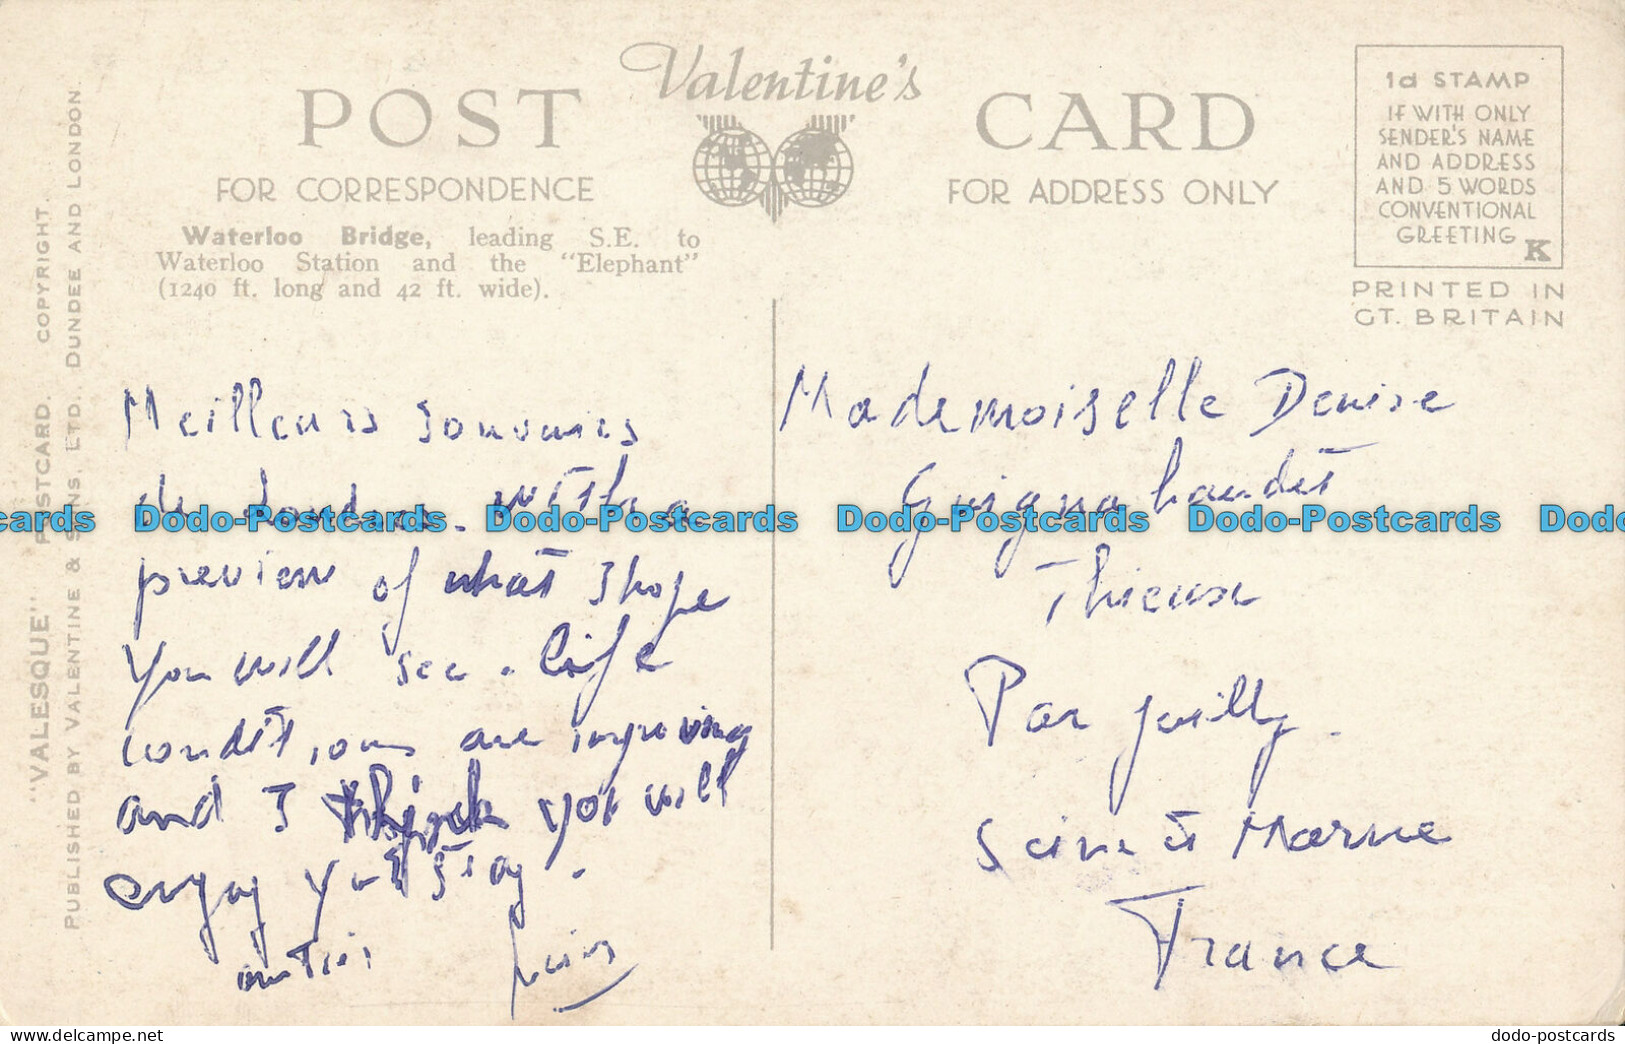 Valentine's
POST CARD
FOR CORRESPONDENCE
FOR ADDRESS ONLY
1d STAMP
IF WITH ONLY
SENDER'S NAME
AND ADDRESS
AND 5 WORDS
CONVENTIONAL
GREETING K
PRINTED IN
GT. BRITAIN
Waterloo Bridge, leading S.E. to
Waterloo Station and the "Elephant"
(1240 ft. long and 42 ft. wide).
"VALESQUE" POSTCARD. COPYRIGHT.
PUBLISHED BY VALENTINE & SONS, LTD., DUNDEE AND LONDON.
Meilleurs souvenirs
de Londres. with a
preview of what I hope
you will see. life
conditions are improving
and I think you will
enjoy your stay.
Mademoiselle Denise
Thieux
Par Juilly.
Seine et Marne
France
cards Dodo-Postcards Dodo-Postcards Dodo-Postcards Dodo-Postcards Dodo
dodo-postcards dodo-postcards.com